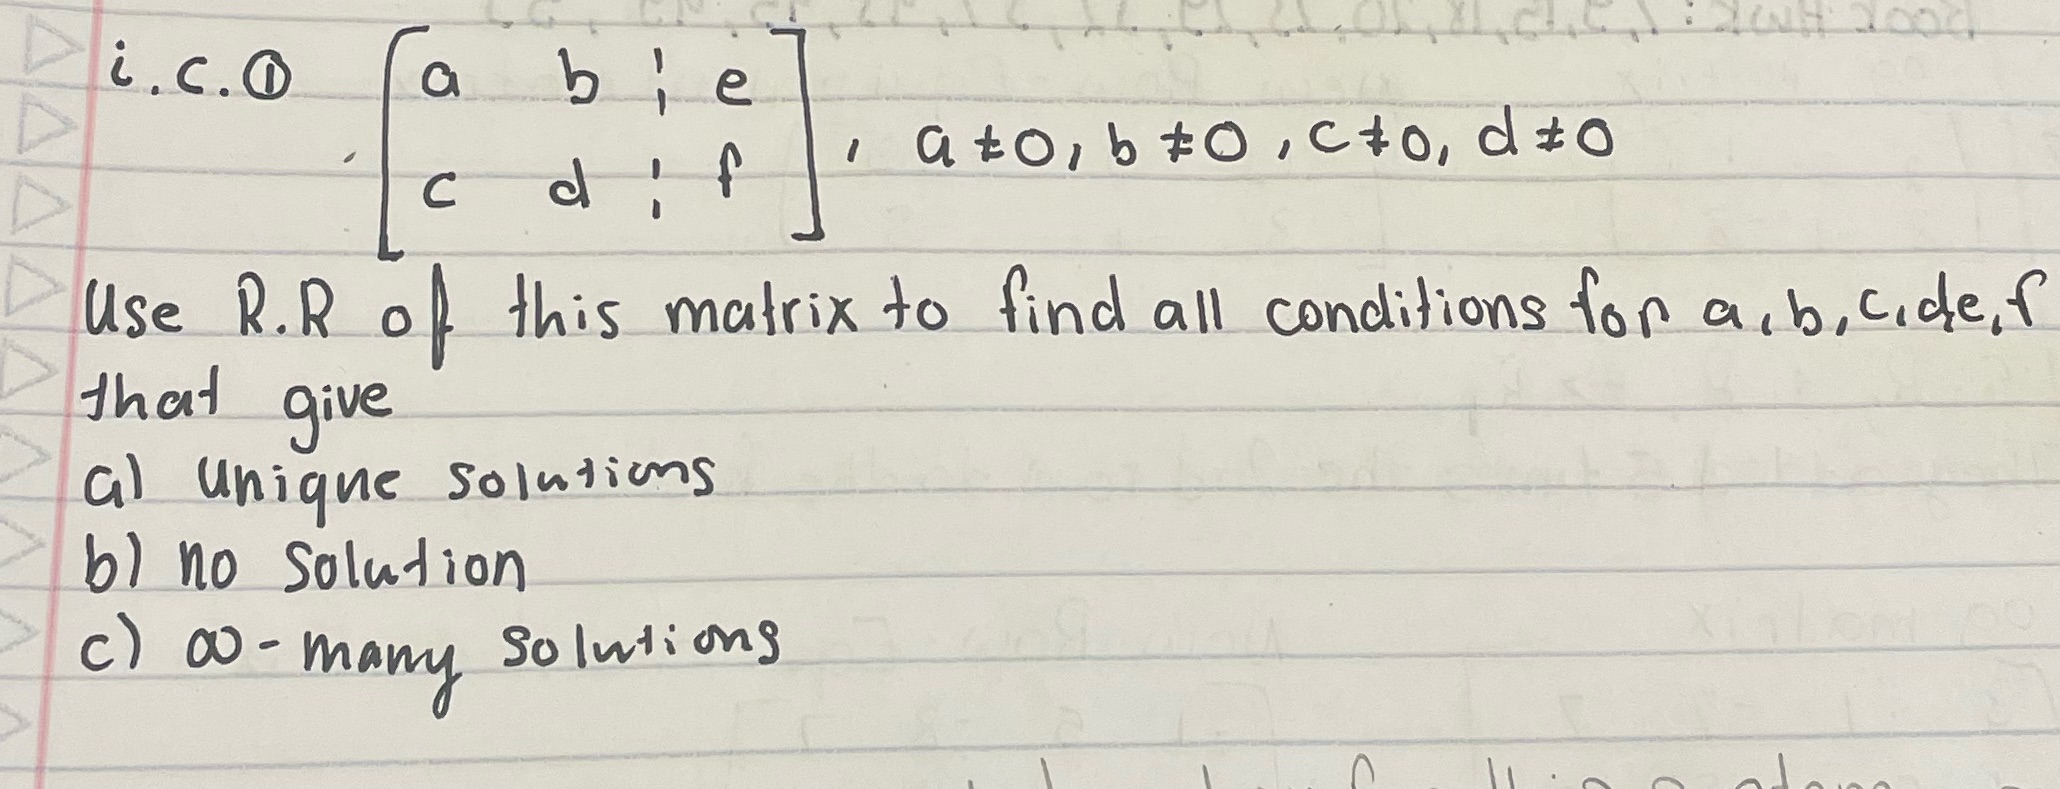 i.c.① [a b ¦ e
c d ¦ f], a≠0, b≠0, c≠0, d≠0
Use R.R of this matrix to find all conditions for a,b,c,de,f
that give
a) unique solutions
b) no solution
c) ∞-many solutions